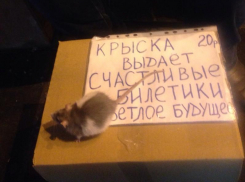 КРЫСКА 20р
ВЫДАЕТ
СЧАСТЛИВЫЕ
БИЛЕТИКИ
БУДУЩЕ